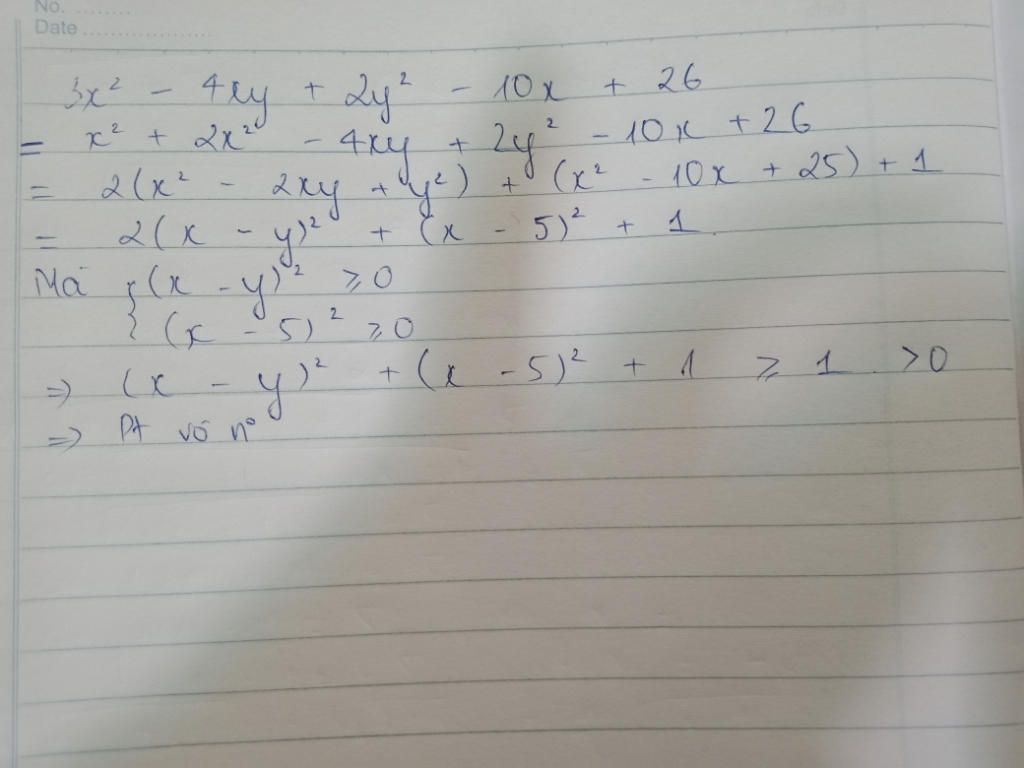 No. ........
Date ...................
3x² - 4xy + 2y² - 10x + 26
= x² + 2x² - 4xy + 2y² - 10x + 26
= 2(x² - 2xy + y²) + (x² - 10x + 25) + 1
= 2(x - y)² + (x - 5)² + 1.
Mà { (x - y)² ⩾ 0
{ (x - 5)² ⩾ 0
=> (x - y)² + (x - 5)² + 1 ⩾ 1 > 0
=> Pt vô n°